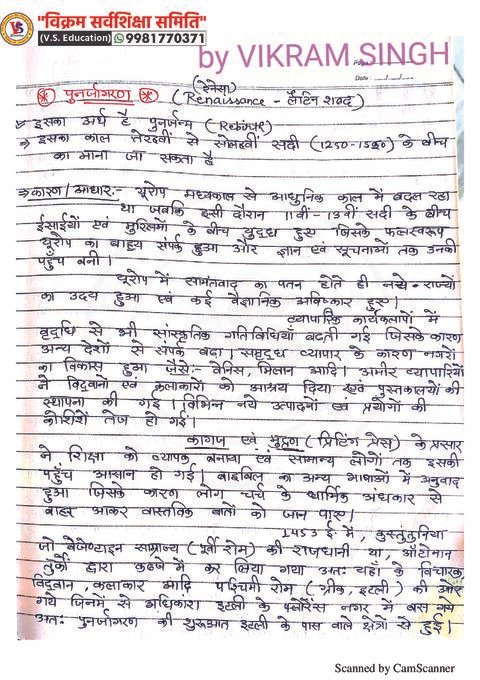 "विक्रम सर्वशिक्षा समिति"
(V.S. Education) 9981770371
by VIKRAM SINGH
Page:
Date: / /
(रेनेसा)
पुनर्जागरण (Renaissance - लैटिन शब्द)
इसका अर्थ है पुनर्जन्म (Rebirth)
⇒ इसका काल तेरहवीं से सोलहवीं सदी (1250-1550) के बीच
का माना जा सकता है
⇒ कारण/आधार:- यूरोप मध्यकाल से आधुनिक काल में बदल रहा
था जबकि इसी दौरान 11वीं-13वीं सदी के बीच
ईसाईयों एवं मुस्लिमों के बीच युद्ध हुए जिसके फलस्वरूप
यूरोप का बाह्य संपर्क हुआ और ज्ञान एवं सूचनाओं तक उनकी
पहुँच बनी।
यूरोप में सामंतवाद का पतन होते ही नये-राज्यों
का उदय हुआ एवं कई वैज्ञानिक अविष्कार हुए।
व्यापारिक कार्यकलापों में
वृद्धि से भी सांस्कृतिक गतिविधियाँ बढ़ती गई जिसके कारण
अन्य देशों से संपर्क बढ़ा। समृद्ध व्यापार के कारण नगरों
का विकास हुआ जैसे:- वेनिस, मिलान आदि। अमीर व्यापारियों
ने विद्वानों एवं कलाकारों को आश्रय दिया एवं पुस्तकालयों की
स्थापना की गई। विभिन्न नये उत्पादनों एवं प्रयोगों की
कोशिशें तेज हो गई।
कागज एवं मुद्रण (प्रिंटिंग प्रेस) के प्रसार
ने शिक्षा को व्यापक बनाया एवं सामान्य लोगों तक इसकी
पहुँच आसान हो गई। बाइबिल का अन्य भाषाओं में अनुवाद
हुआ जिसके कारण लोग चर्च के धार्मिक अंधकार से
बाहर आकर वास्तविक बातों को जान पाए।
1453 ई. में, कुस्तुंतुनिया
जो बेजेण्टाइन साम्राज्य (पूर्वी रोम) की राजधानी था, ऑटोमान
तुर्कों द्वारा कब्जे में कर लिया गया अतः यहाँ के विचारक,
विद्वान, कलाकार आदि पश्चिमी रोम (ग्रीक, इटली) की ओर
गये जिनमें से अधिकांश इटली के फ्लोरेंस नगर में बस गये
अतः पुनर्जागरण की शुरूआत इटली के पास वाले क्षेत्रों से हुई।
Scanned by CamScanner